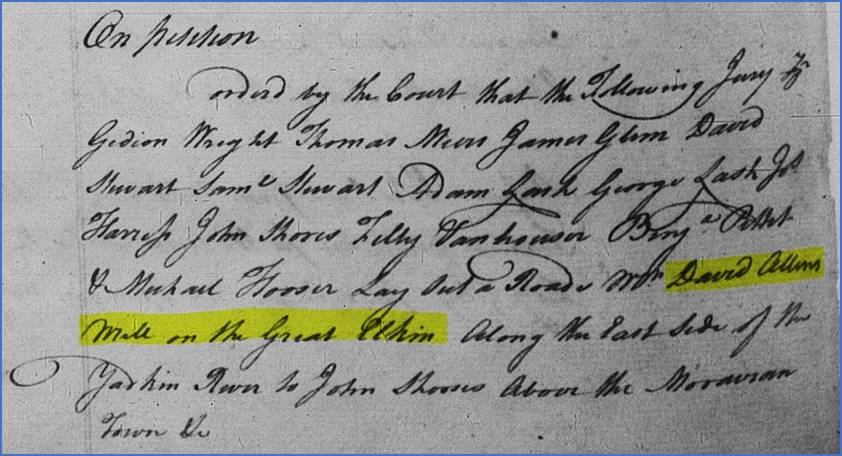 On petition
orderd by the Court that the Following Jury
Gedion Wright Thomas Meers James Glen David
Stewart Sam.l Stewart Adam Lash George Lash Jos
Harriss John Shores Vanhouser Benj.a Pettet
& Michael Hooser Lay Out a Road David Allens
Mill on the Great Elkin Along the East Side of the
Yadkin River to John Shooses Above the Moravian
Town &c